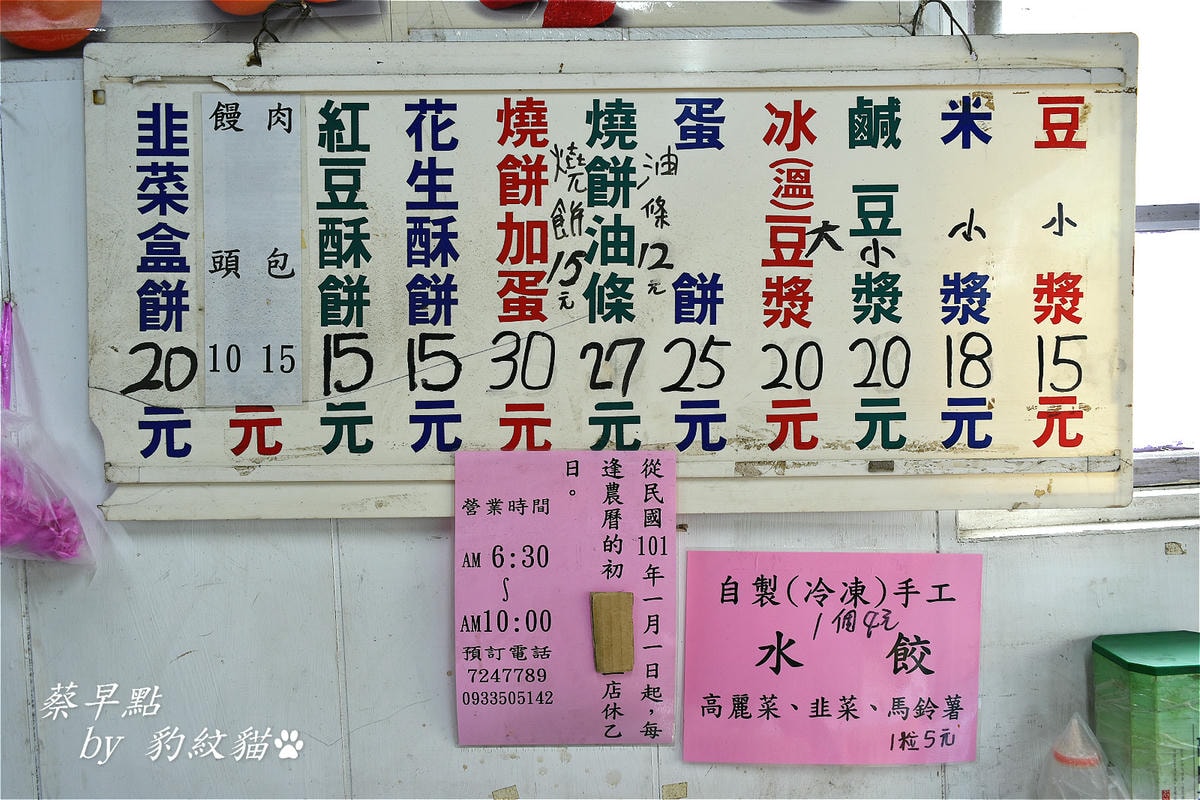 豆小漿15元
米小漿18元
鹹豆小漿20元
冰(溫)豆漿大20元
蛋餅25元
油條12元
燒餅油條27元
燒餅15元
燒餅加蛋30元
花生酥餅15元
紅豆酥餅15元
肉包15
饅頭10
元
韭菜盒餅20元
從民國101年一月一日起,每
逢農曆的初
店休乙
日。
營業時間
AM 6:30
~
AM10:00
預訂電話
7247789
0933505142
自製(冷凍)手工
1個4元
水餃
高麗菜、韭菜、馬鈴薯
1粒5元
蔡早點
by 豹紋貓